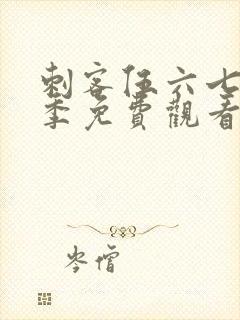 刺客伍六七
季免費觀看
岑僧